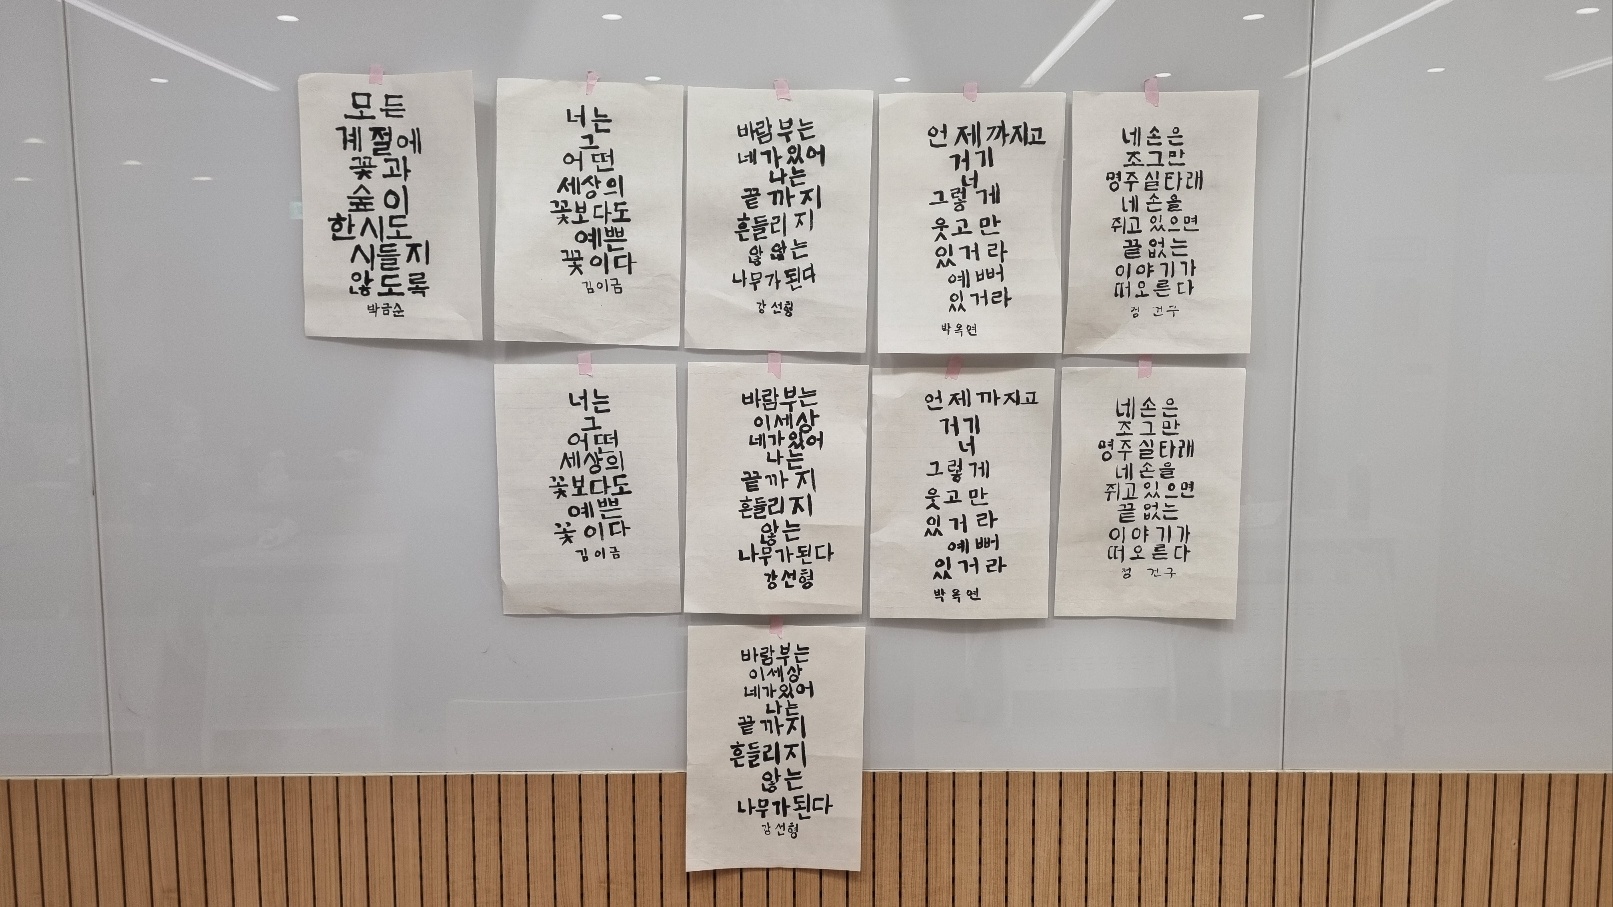 모든
계절에
꽃과
숲이
한시도
시들지
않도록
박금순
너는
그
어떤
세상의
꽃보다도
예쁜
꽃이다
김이금
바람부는
네가있어
나는
끝까지
흔들리지
않않는
나무가된다
강선형
언제까지고
거기
너
그렇게
웃고만
있거라
예뻐
있거라
박옥연
네손은
조그만
명주실타래
네손을
쥐고있으면
끝없는
이야기가
떠오른다
정건구
너는
그
어떤
세상의
꽃보다도
예쁜
꽃이다
김이금
바람부는
이세상
네가있어
나는
끝까지
흔들리지
않는
나무가된다
강선형
언제까지고
거기
너
그렇게
웃고만
있거라
예뻐
있거라
박옥연
네손은
조그만
명주실타래
네손을
쥐고있으면
끝없는
이야기가
떠오른다
정건구
바람부는
이세상
네가있어
나는
끝까지
흔들리지
않는
나무가된다
강선형